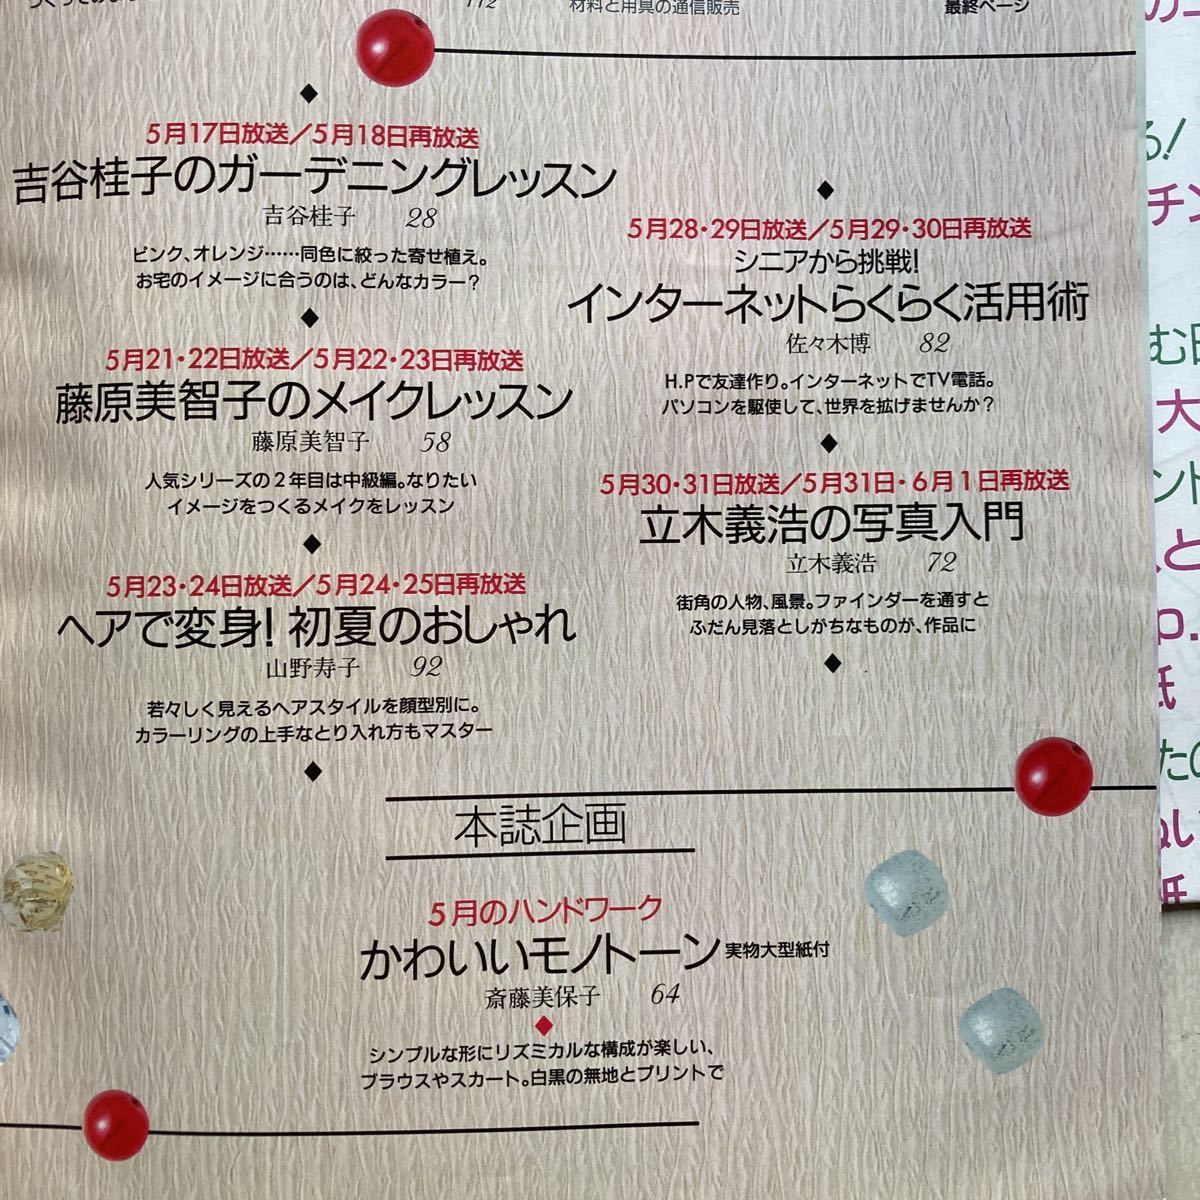 112
材料と用具の通信販売
最終ページ
5月17日放送／5月18日再放送
吉谷桂子のガーデニングレッスン
吉谷桂子 28
ピンク、オレンジ……同色に絞った寄せ植え。
お宅のイメージに合うのは、どんなカラー？
5月21・22日放送／5月22・23日再放送
藤原美智子のメイクレッスン
藤原美智子 58
人気シリーズの2年目は中級編。なりたい
イメージをつくるメイクをレッスン
5月23・24日放送／5月24・25日再放送
ヘアで変身! 初夏のおしゃれ
山野寿子 92
若々しく見えるヘアスタイルを顔型別に。
カラーリングの上手なとり入れ方もマスター
5月28・29日放送／5月29・30日再放送
シニアから挑戦!
インターネットらくらく活用術
佐々木博 82
H.Pで友達作り。インターネットでTV電話。
パソコンを駆使して、世界を拡げませんか？
5月30・31日放送／5月31日・6月1日再放送
立木義浩の写真入門
立木義浩 72
街角の人物、風景。ファインダーを通すと
ふだん見落としがちなものが、作品に
本誌企画
5月のハンドワーク
かわいいモノトーン 実物大型紙付
斎藤美保子 64
シンプルな形にリズミカルな構成が楽しい、
ブラウスやスカート。白黒の無地とプリントで
る!
チン
む日
大
ント
と
p.
紙
たの
ぬい
紙